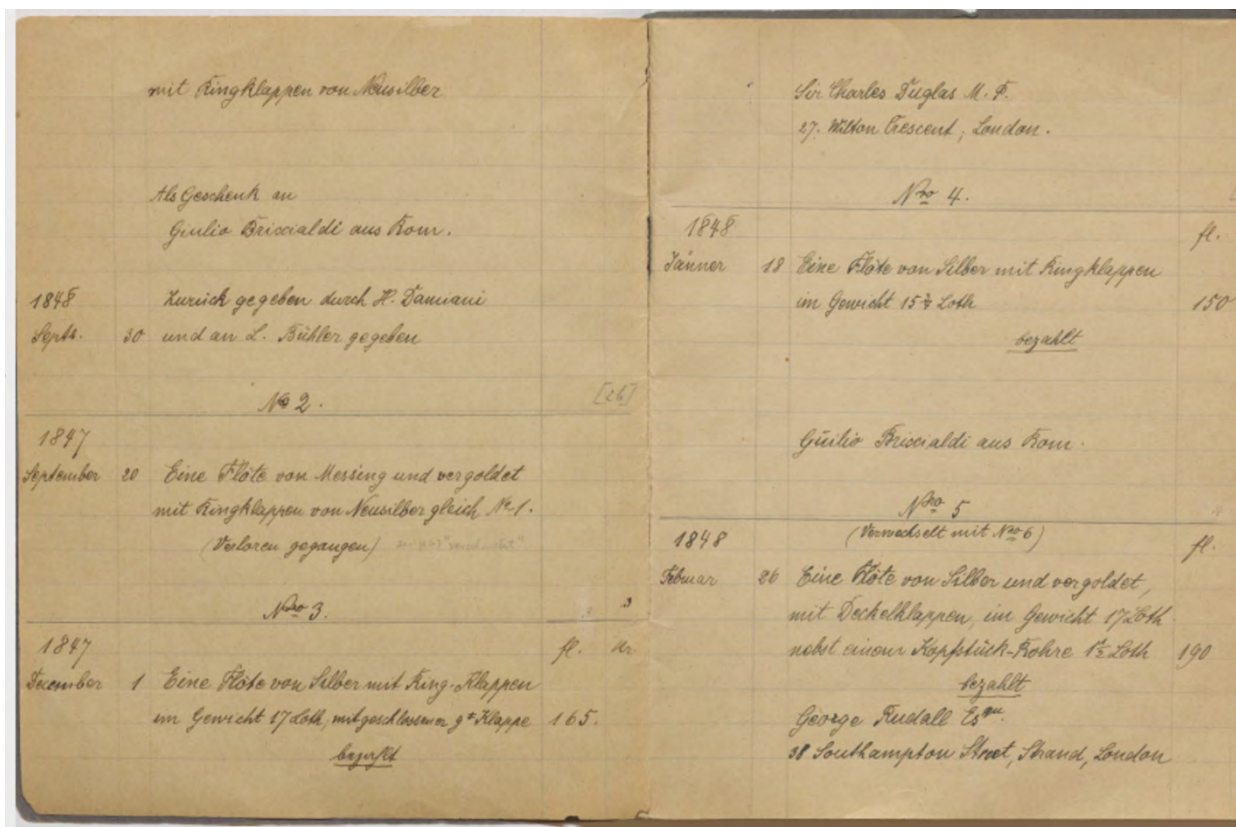 mit Ringklappen von Neusilber
Als Geschenk an
Giulio Briccialdi aus Rom.
1848 Zurück gegeben durch H. Damiani
Septb. 30 und an L. Bühler gegeben
[26]
No 2.
1847
September 20 Eine Flöte von Messing und vergoldet
mit Ringklappen von Neusilber gleich No 1.
(Verloren gegangen)
Nro 3.
1847 fl. Kr
Dezember 1 Eine Flöte von Silber mit Ring-Klappen
im Gewicht 17 Loth, mit geschlossener g# Klappe 165.
bezahlt
Sir Charles Duglas M. P.
27. Wilton Crescent, London.
Nro 4.
1848 fl.
Jänner 18 Eine Flöte von Silber mit Ringklappen
im Gewicht 15¾ Loth 150
bezahlt
Guilio Briccialdi aus Rom.
Nro 5
1848 (Verwechselt mit Nro 6) fl.
Februar 26 Eine Flöte von Silber und vergoldet,
mit Deckelklappen, im Gewicht 17 Loth
nebst einem Kopfstück-Rohre 1½ Loth 190
bezahlt
George Rudall Esqu.
38 Southampton Street, Strand, London